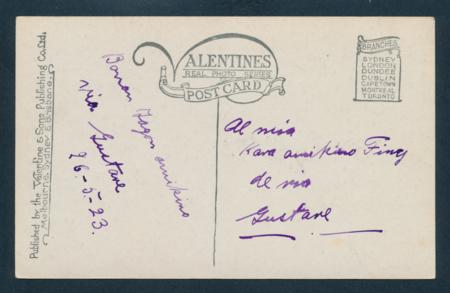 Published by the Valentine & Sons Publishing Co. Ltd.
Melbourne, Sydney & Brisbane.
VALENTINES
REAL PHOTO SERIES
POST CARD
BRANCHES
SYDNEY
LONDON
DUNDEE
DUBLIN
CAPETOWN
MONTREAL
TORONTO
Bonan tagon amikino
via Gustave
26-5-23.
Al mia
Kara amikino
de via
Gustave